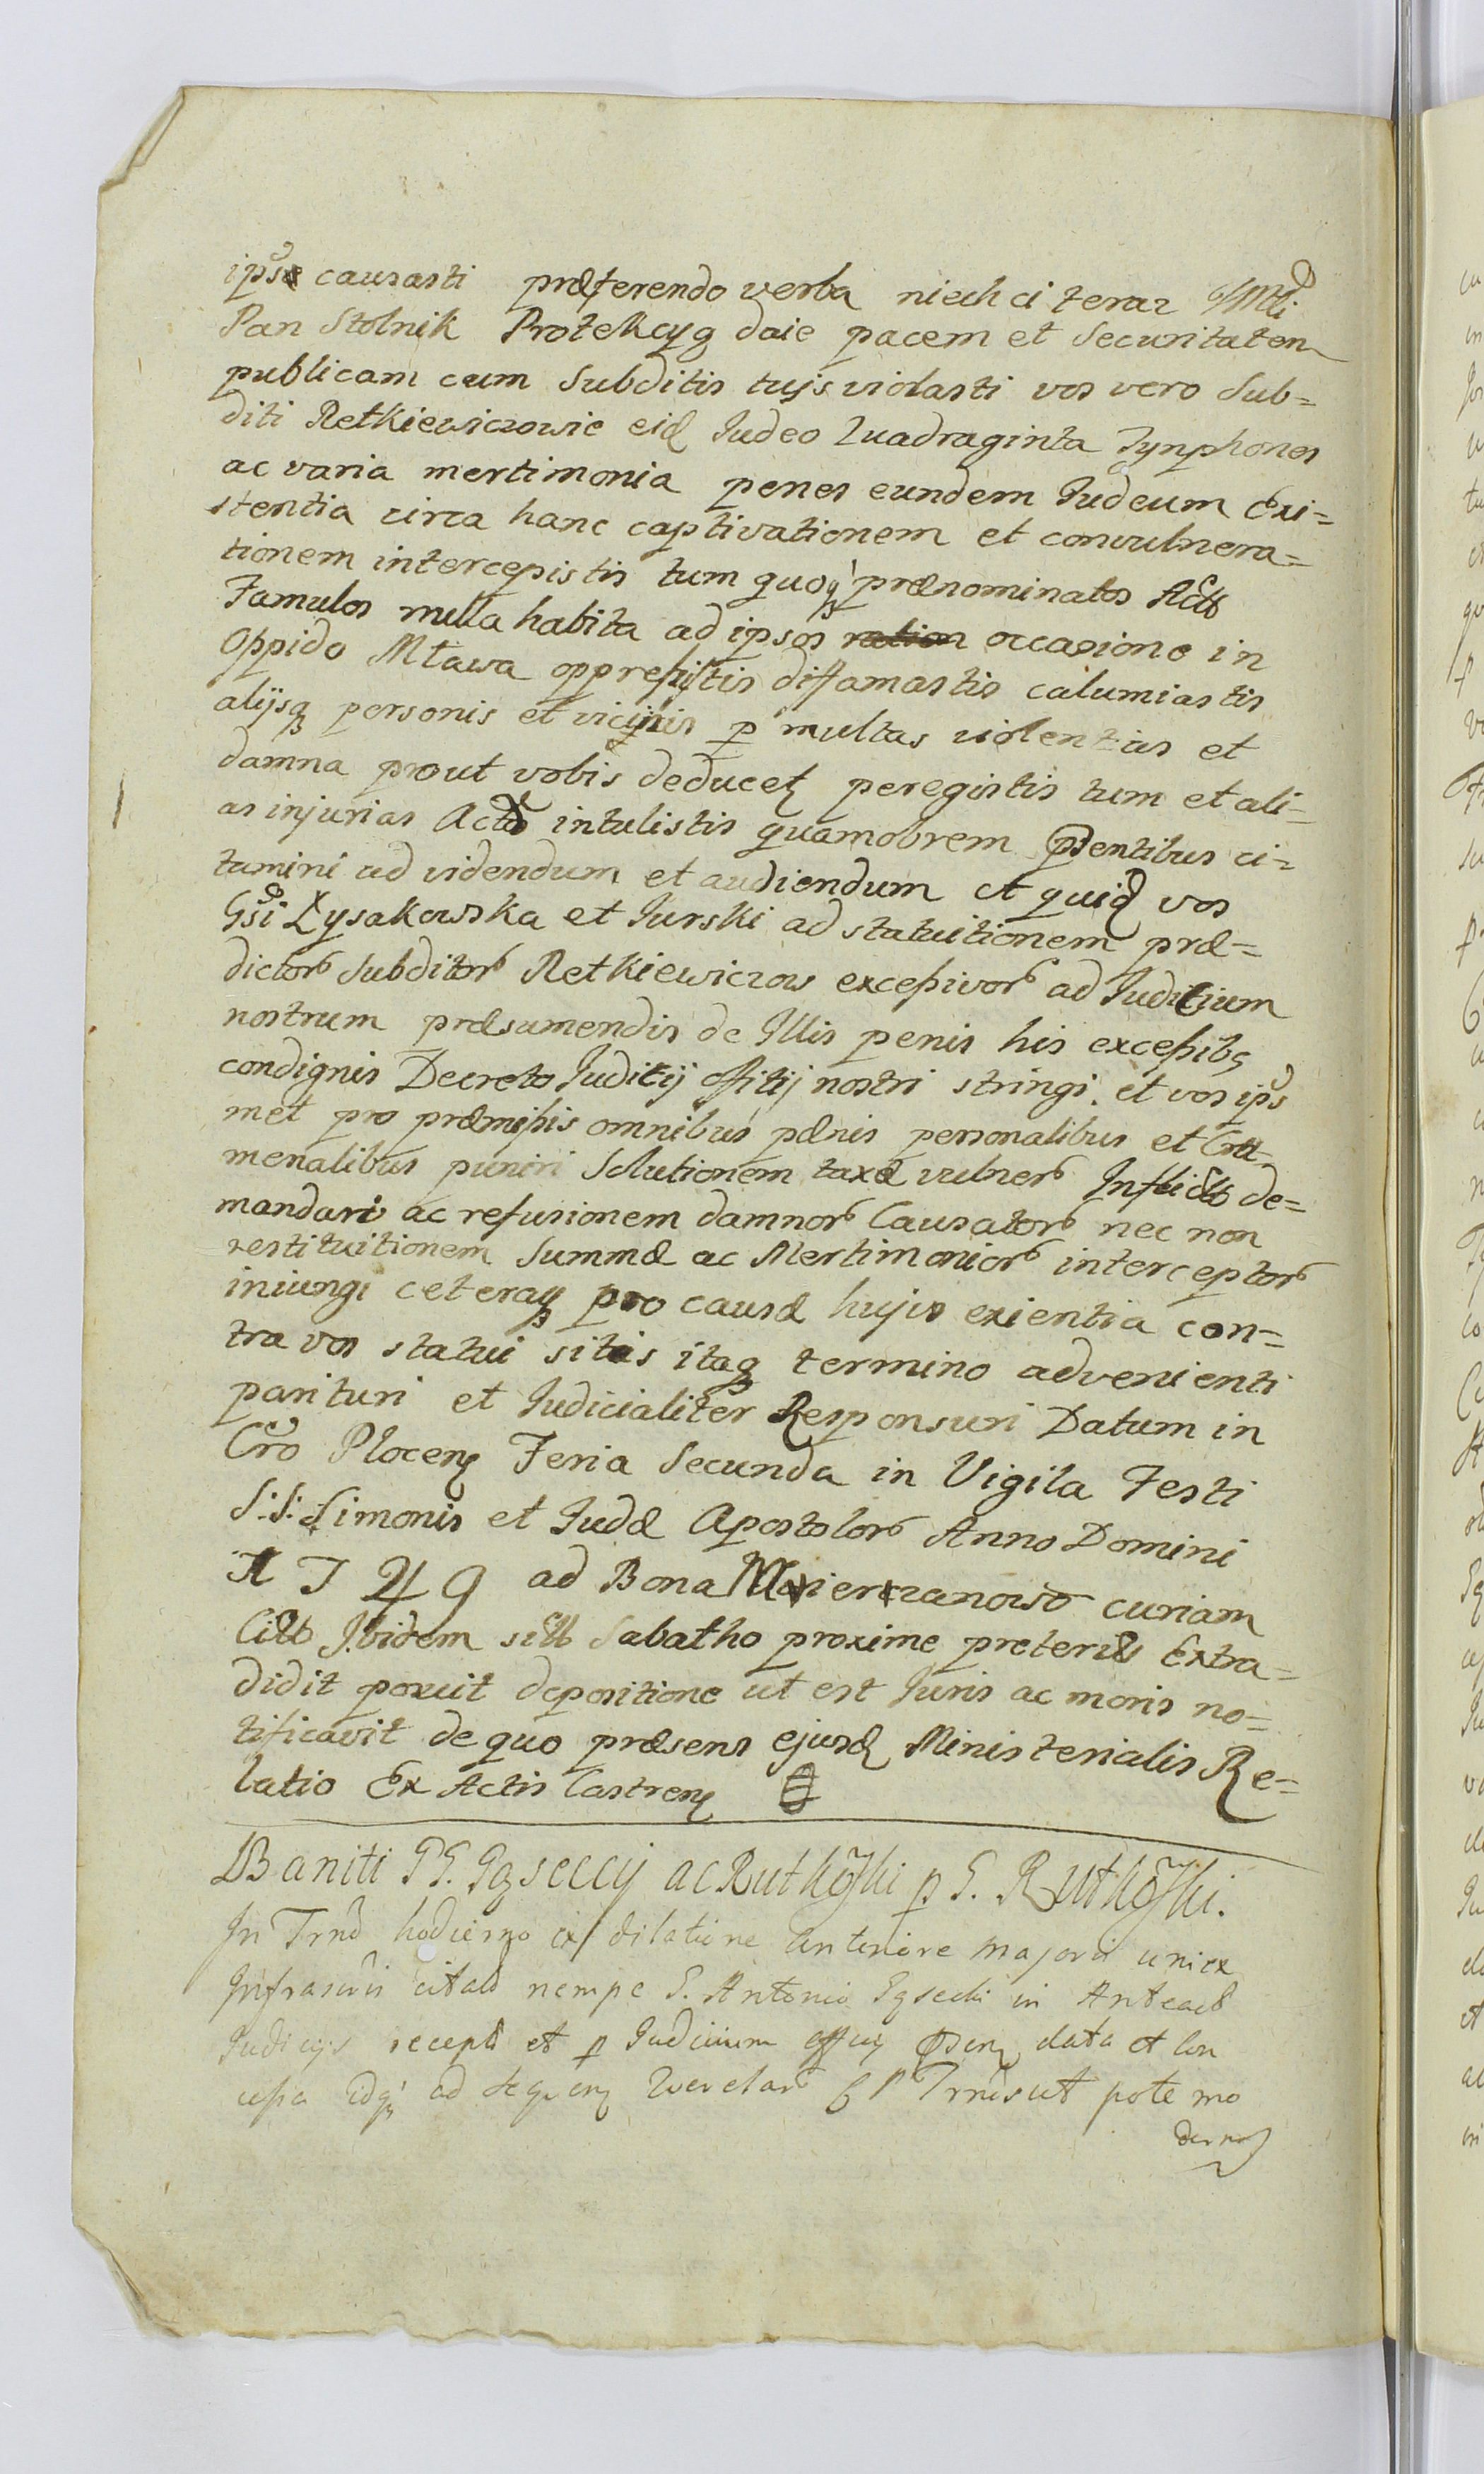 ipse causasti præferendo verba niech ci teraz JMci
Pan Stolnik Protekcyą daie pacem et Securitatem
publicam cum Subditis tuis violasti vos vero Sub=
diti Retkiewiczowie eid Judeo Quadraginta Tynphones
ac varia mertimonia penes eundem Judeum Exi=
stentia circa hanc captivationem et convulnera=
tionem intercepistis tum quoq prænominatos Act
Famulos nulla habita ad ipsos occasione in
Oppido Mława oppressistis diffamastis calumiastis
alijsq personis et vicinis p multas violentias et
damna prout vobis deducet peregistis tum et ali=
as injurias Act intulistis quamobrem Psentibus ci=
tamini ad videndum et audiendum et quid vos
Gsi Łysakowska et Jurski ad statuitionem præ=
dictor Subditor Retkiewiczow excessivor ad Juditium
nostrum præsumendis de Illis penis his excessibs
condignis Decreto Juditij offitij nostri stringi. et vos ips
met pro præmissis omnibus pænis personalibus et Cri=
menalibus puniri Solutionem taxæ vulner Inflict de=
mandari ac refusionem damnor Causator nec non
restituitionem Summæ ac Mertimonior interceptor
iniungi ceteraq pro causæ hujus exientia con=
tra vos statui sitis itaq termino advenienti
parituri et Judicialiter Responsuri Datum in
Cro Plocen Feria Secunda in Vigila Festi
S: S: Simonis et Judæ Apostolor Anno Domini
1749 ad Bona curiam
Citt Ibidem sitt Sabatho proxime preterit Extra=
didit posuit depositione ut est Juris ac moris no=
tificavit de quo præsens ejusd Ministerialis Re=
latio Ex Actis Castren
Baniti ac Rutkoski p G. Rutkoski.
In Trno hodierno ex dilatione anteriore majoris
Infrascris citato nempe G. Antonio in Anteact
Judicijs recept et p Judicium data et con
cessa ad ut pote mo
derno